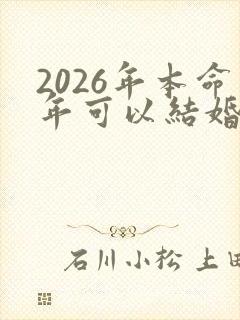 2026年本命
年可以結婚
石川小松 上田